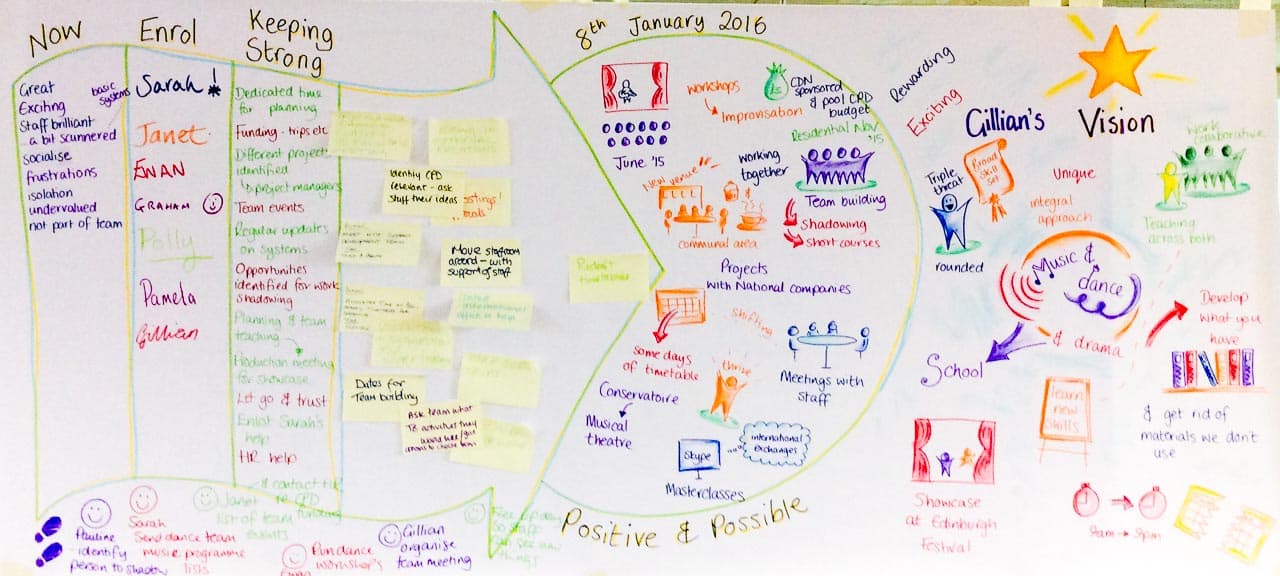 Now
Great
Exciting
basic
systems
Staff brilliant
a bit scunnered
socialise
frustrations
isolation
undervalued
not part of team
Enrol
Sarah!
Janet
EWAN
GRAHAM
Polly
Pamela
Gillian
Keeping
Strong
Dedicated time
for planning
Funding - trips etc
Different projects
identified
project managers
Team events
Regular updates
on systems
Opportunities
identified for work
shadowing
Planning & team
teaching
Production meeting
for showcase
Let go & trust
Enlist Sarah's
help
HR help
Identify CPD
relevant - ask
staff their ideas
Move staffroom
around - with
support of staff
Dates for
Team building
Ask team what
TB activities they
8th January 2016
June '15
workshops
Improvisation
£s
CDN
sponsored
& pool CPD
budget
Residential Nov
'15
New venue
communal area
working
together
Team building
Shadowing
short courses
Projects
with National companies
Same days
of timetable
shifting
thrive
Meetings with
Staff
Conservatoire
Musical
theatre
Skype
international
exchanges
Masterclasses
Positive & Possible
Rewarding
Exciting
Gillian's Vision
Triple
threat
rounded
Broad
Skill
Set
Unique
integral
approach
Work
collaborative
Teaching
across both
Music &
dance
& drama
School
Develop
what you
have
learn
new
skills
& get rid of
materials we don't
use
Showcase
at Edinburgh
Festival
9am → 9pm
Pauline
- identify
person to shadow
Sarah
Send dance team
music programme
lists
Janet
list of team
events
Run dance
workshops
Ewan
Gillian
organise
team meeting